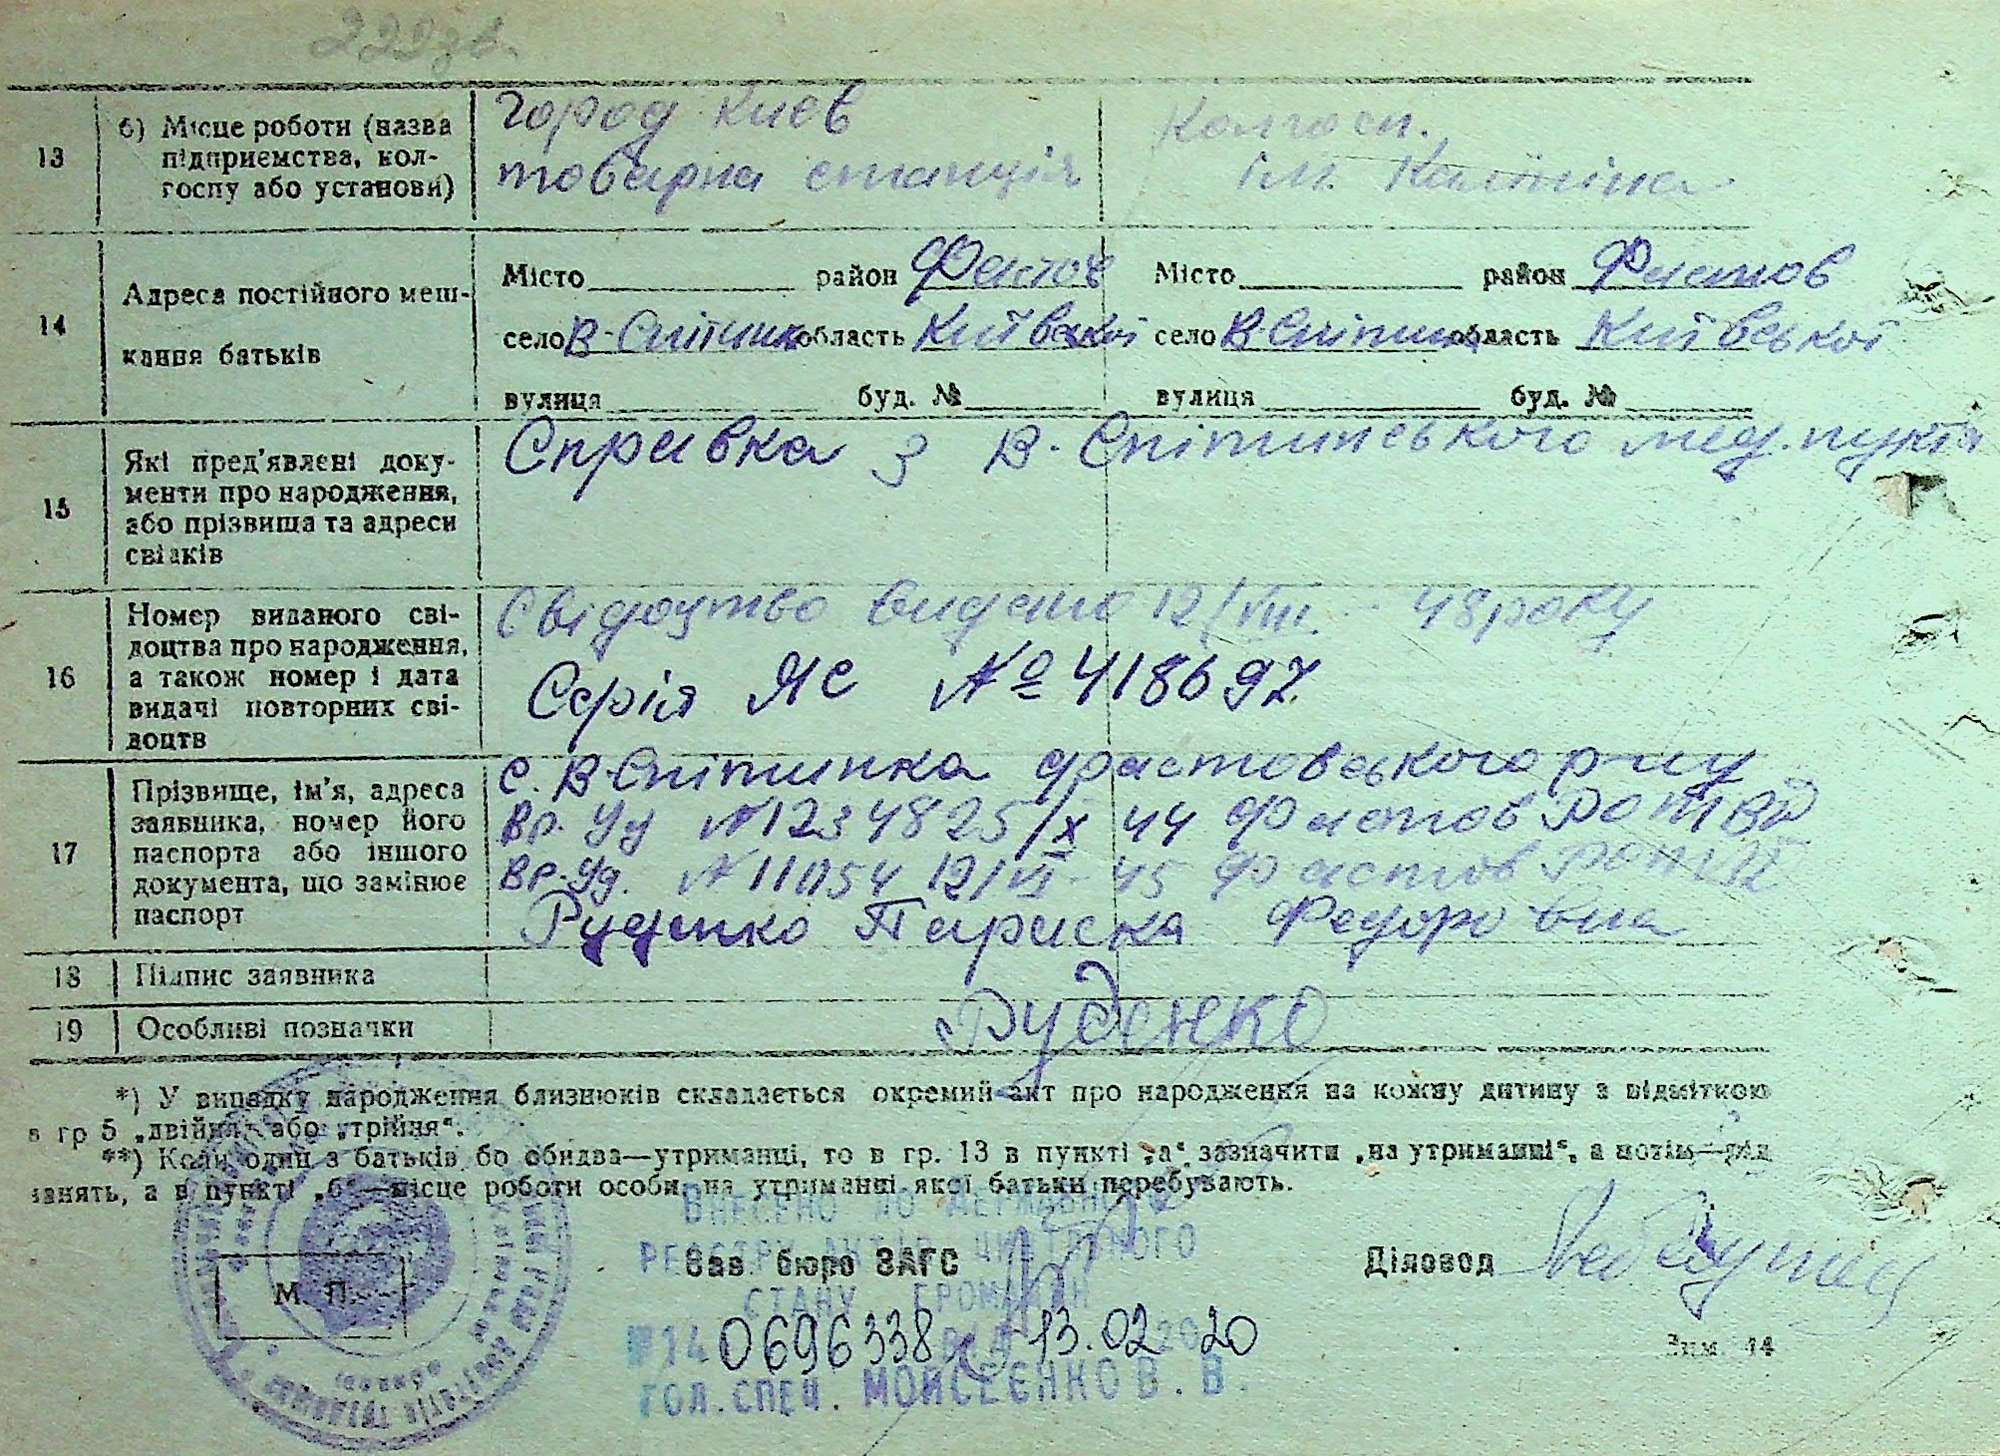 222зв.
13 б) Місце роботи (назва підприємства, колгоспу або установи)
город Киев
товарна станція
Колгосп.
ім. Калініна
14 Адреса постійного мешкання батьків
Місто район Фастов
село В-Снітинка область Київської
вулиця буд. №
Місто район Фастов
село В Снітинка область Київської
вулиця буд. №
15 Які пред'явлені документи про народження, або прізвища та адреси свідків
Справка з В-Снітинського мед. пункта
16 Номер виданого свідоцтва про народження, а також номер і дата видачі повторних свідоцтв
Свідоцтво видано 12/VIII - 48 року
Серія ЯС № 418697
17 Прізвище, ім'я, адреса заявника, номер його паспорта або іншого документа, що замінює паспорт
с. В-Снітинка Фастовського р-ну
Вр. Уд №1234825/X 44 Фастов
Вр. Уд. №11054 12/VI-45 Фастов
Руденко Параска Федоровна
18 Підпис заявника
Руденко
19 Особливі позначки
*) У випадку народження близнюків складається окремий акт про народження на кожну дитину з відміткою
в гр 5 „двійня“ або „трійня“.
**) Коли один з батьків бо обидва—утриманці, то в гр. 13 в пункті „а“ зазначити „на утриманні“, а потім—рід
занять, а в пункті „б“—місце роботи особи на утриманні якої батьки перебувають.
Внесено до державного
реєстру актів цивільного
стану громадян
№ 14 0696338 від 13.02 2020
гол.спец. Мойсеєнко В.В.
М. П.
Зав. бюро ЗАГС
Діловод
Зим. 14